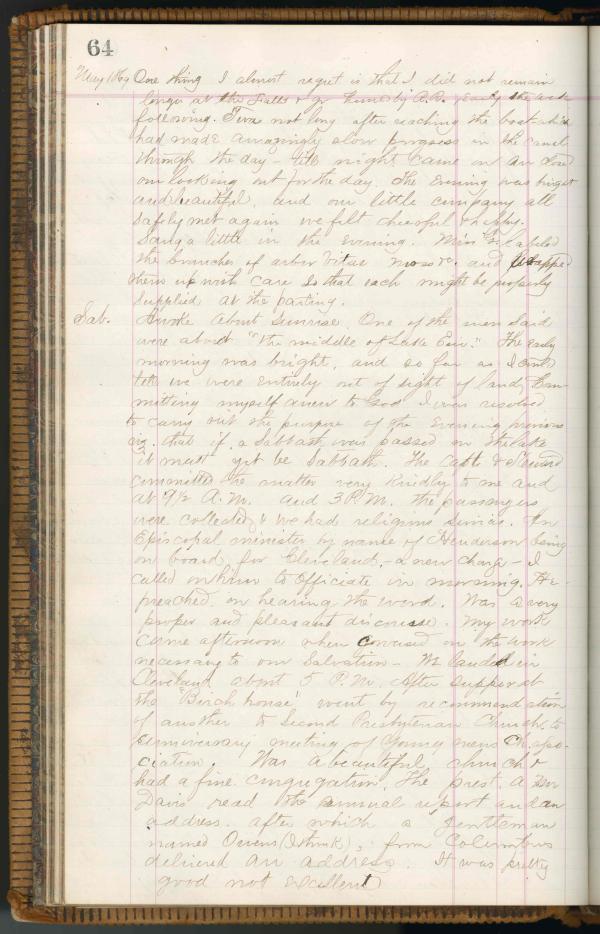 64
May 1869 One thing I almost regret is that I did not remain
longer at the Falls & go by R.R. early the week
following. Twas not long after reaching the boat which
had made amazingly slow progress in the canal
through the day - till night came in and
our looking out for the day. The Evening was bright
and beautiful, and our little company all
safely met again we felt cheerful & happy.
Sang a little in the evening. Miss labeled
the branches of arbor Vitae moss &c. and wrapped
them up with care so that each might be properly
supplied at the parting.
Sab. Awoke about sunrise. One of the men said
were about "the middle of Lake Erie." The early
morning was bright, and so far as I could
tell we were entirely out of sight of land. Com-
mitting myself anew to God I was resolved
to carry out the purpose of the evening previous
viz. that if a Sabbath was passed on the lake
it must yet be Sabbath. The Capt. & Steward
committed the matter very kindly to me and
at 9½ A.M. and 3 P.M. the passengers
were collected & we had religious services. An
Episcopal minister by name of Henderson being
on board, for Cleveland, - a new charge - I
called on him to officiate in morning. He
preached on hearing the word. Was a very
proper and pleasant discourse. My work
came afternoon when conversed on the work
necessary to our Salvation - We landed in
Cleveland about 5 P.M. After supper at
the "Birch house" went by recommendation
of another to Second Presbyterian Church to
anniversary meeting of Young mens Ch. Asso-
ciation. Was a beautiful church &
had a fine congregation. The prest. a Mr
Davis read the annual report and an
address. after which a gentleman
named Owens (I think), from Columbus
delivered an address. It was pretty
good not excellent